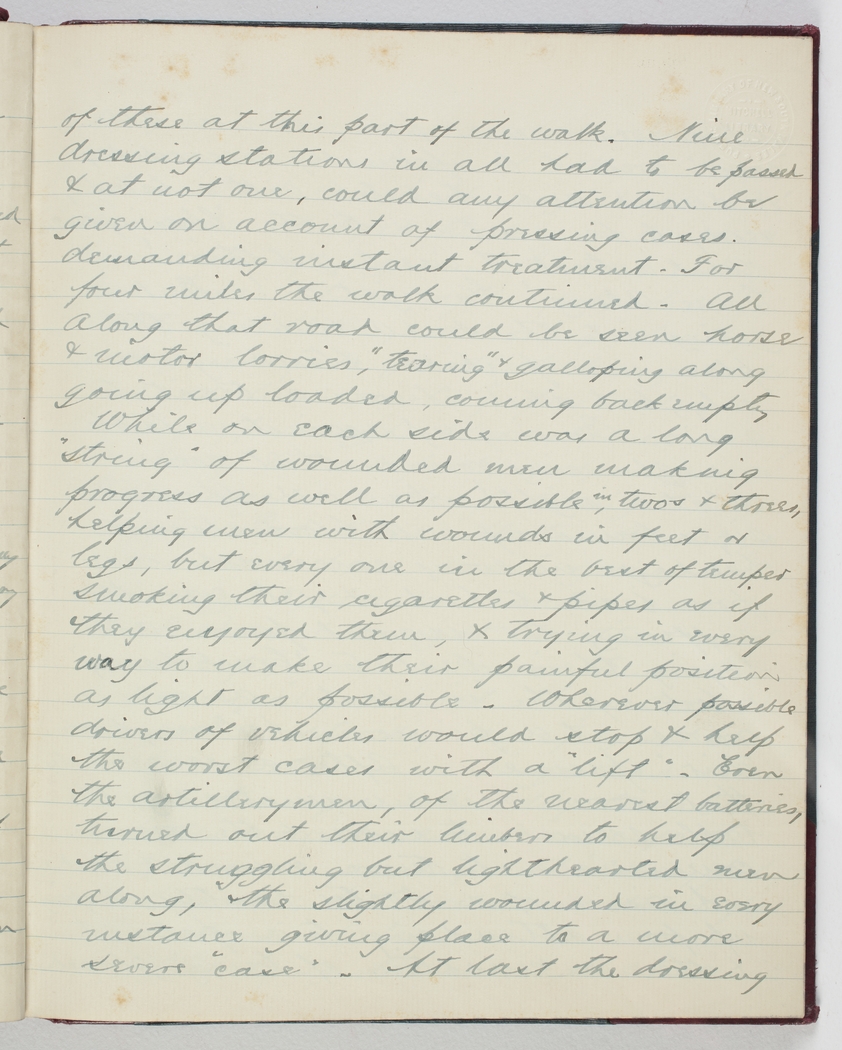 of these at this part of the walk. Nine
dressing stations in all had to be passed
& at not one, could any attention be
given on account of pressing cases.
demanding instant treatment. For
four miles the walk continued. All
along that road could be seen horse
& motor lorries, "tearing" & galloping along
going up loaded, coming back empty
While on each side was a long
"string" of wounded men making
progress as well as possible in, twos & threes,
helping men with wounds in feet or
legs, but every one in the best of temper
smoking their cigarettes & pipes as if
they enjoyed them, & trying in every
way to make their painful position
as light as possible. Wherever possible
drivers of vehicles would stop & help
the worst cases with a "lift". Even
the artillerymen, of the nearest batteries,
turned out their limbers to help
the struggling but lighthearted men
along, & the slightly wounded in every
instance giving place to a more
severe "case". At last the dressing